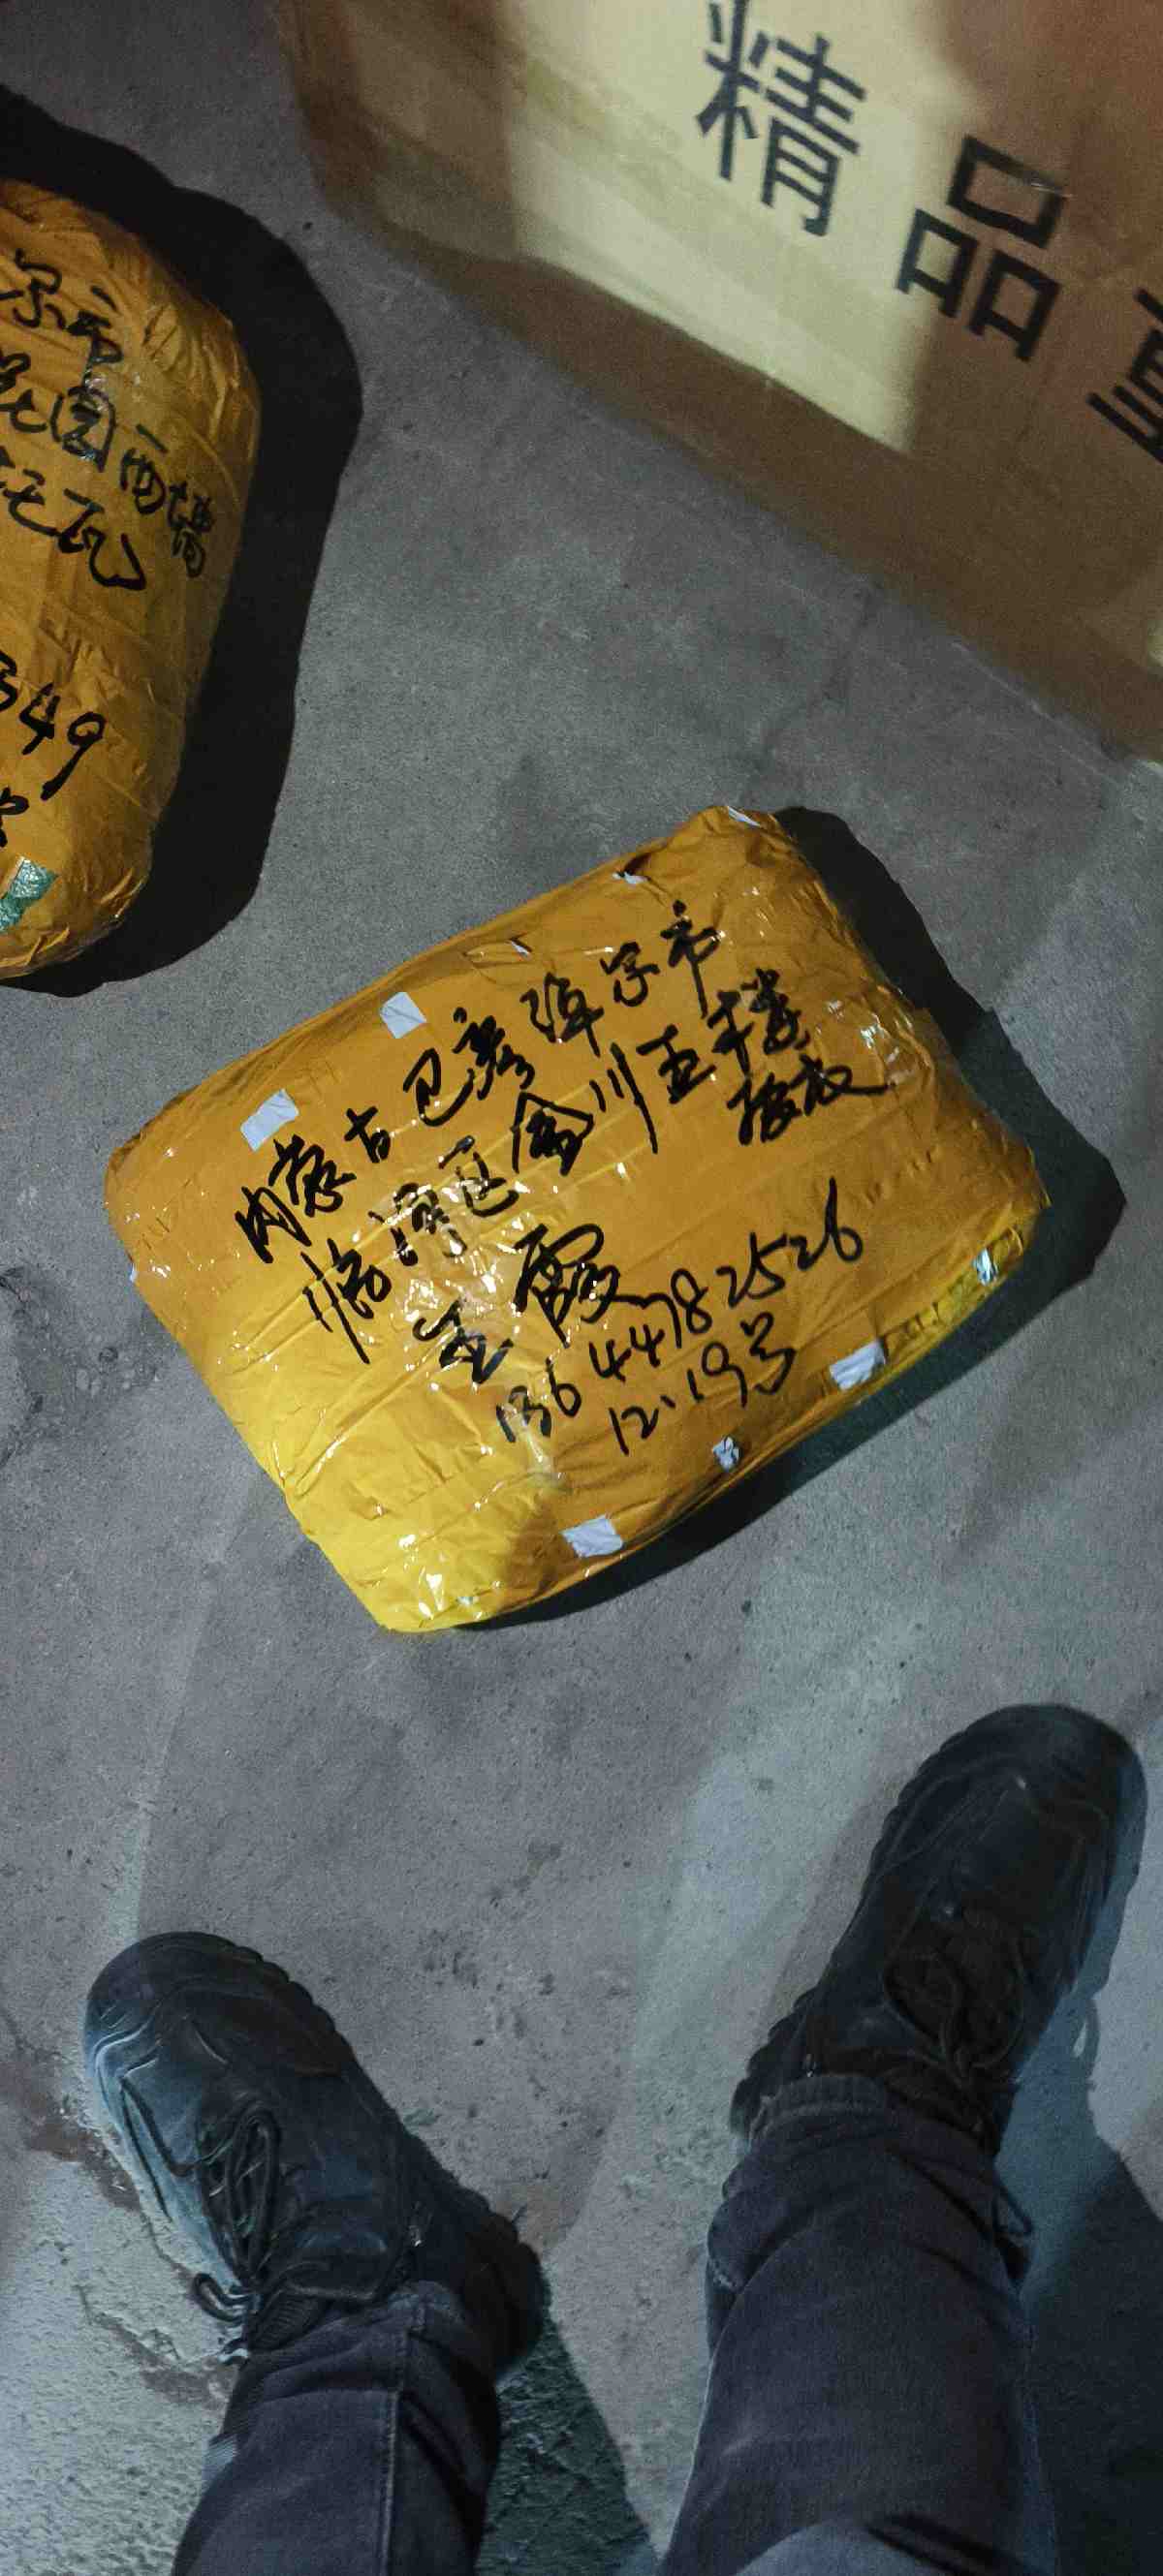 精品
尔市
花园西墙
瓦
349
内蒙古巴彦淖尔市
临河区金川五千楼
王霞
13644782526
12.19号